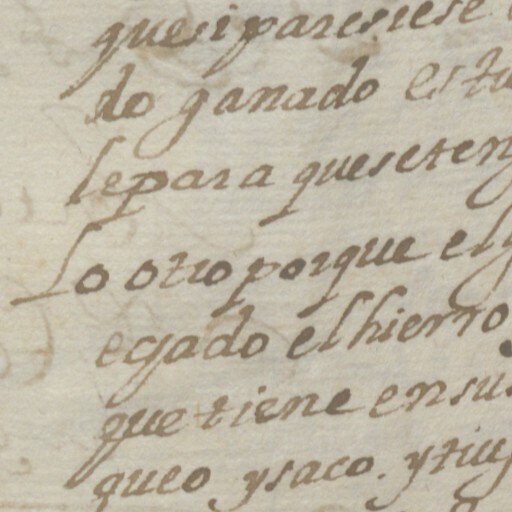 quesi paresiese
do ganado estu
lepara queseten
Lo otro porque el
egado elhierro
quetiene ensu
queo ysaco. y